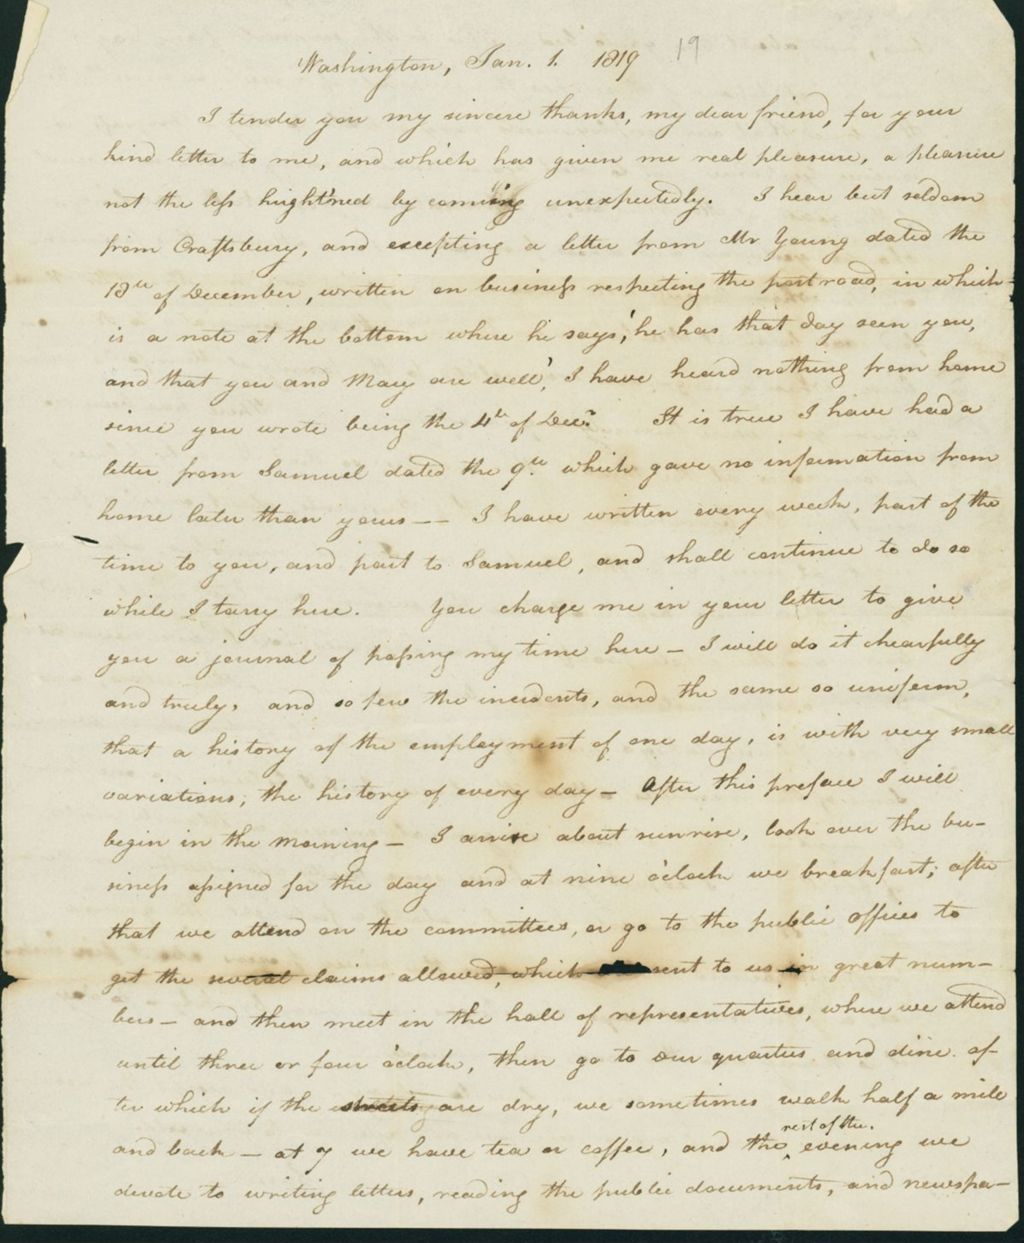 Washington, Jan. 1. 1819 19
I tender you my sincere thanks, my dear friend, for your
kind letter to me, and which has given me real pleasure, a pleasure
not the less hight'ned by coming unexpectedly. I hear but seldom
from Craftsbury, and excepting a letter from Mr Young dated the
18th of December, written on business respecting the post road, in which
is a note at the bottom where he says, 'he has that day seen you,
and that you and Mary are well', I have heard nothing from home
since you wrote being the 4th of Decr. It is true I have had a
letter from Samuel dated the 9th which gave no information from
home later than yours — — I have written every week, part of the
time to you, and part to Samuel, and shall continue to do so
while I tarry here. You charge me in your letter to give
you a journal of passing my time here — I will do it chearfully
and truly, and so few the incidents, and the same so uniform,
that a history of the employment of one day, is with very small
variations, the history of every day — After this preface I will
begin in the morning — I arise about sunrise, look over the bu-
siness assigned for the day and at nine o'clock we breakfast; after
that we attend on the committees, or go to the public offices to
get the several claims allowed, which sent to us in great num-
bers — and then meet in the hall of representatives, where we attend
until three or four o'clock, then go to our quarters and dine. af-
ter which if the streets are dry, we sometimes walk half a mile
and back — at 7 we have tea or coffee, and the rest of the evening we
devote to writing letters, reading the public documents, and newspa-